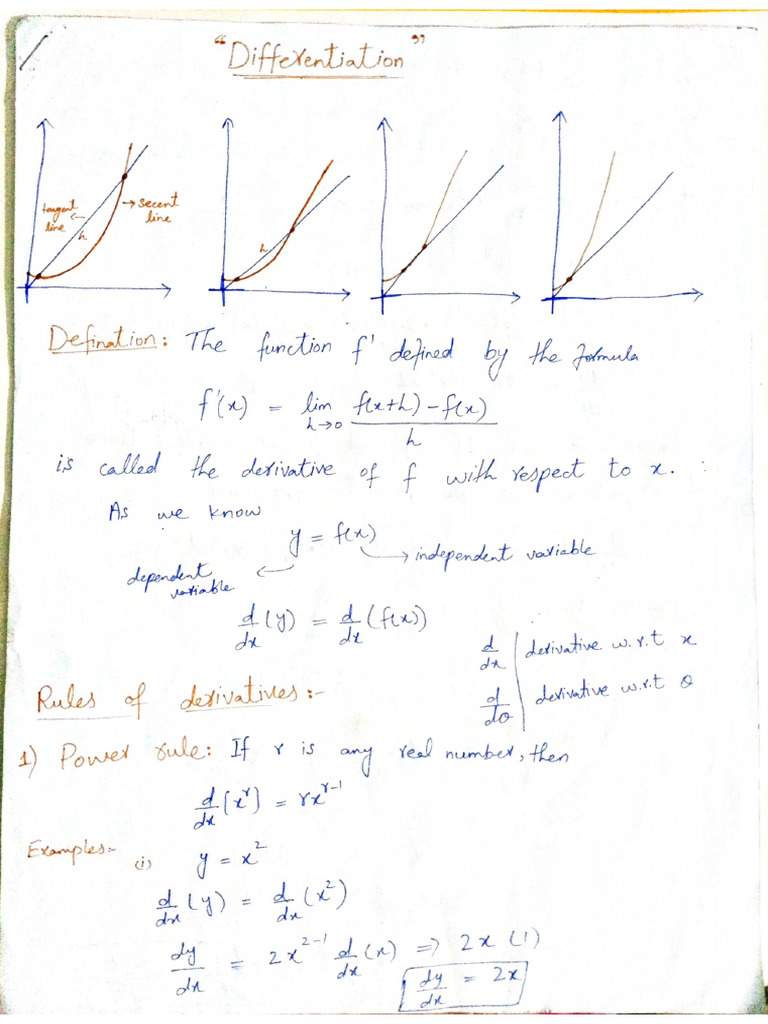 "Differentiation"
tangent
line
h
→ secent
line
h
Defination: The function f' defined by the formula
f'(x) = lim h→0 f(x+h) - f(x) / h
is called the derivative of f with respect to x.
As we know
y = f(x)
→ independent variable
dependent
variable
d/dx (y) = d/dx (f(x))
d/dx | derivative w.r.t x
d/dθ | derivative w.r.t θ
Rules of derivatives:-
1) Power rule: If r is any real number, then
d/dx [x^r] = rx^(r-1)
Examples:- (i) y = x²
d/dx (y) = d/dx (x²)
dy/dx = 2x^(2-1) d/dx (x) ⇒ 2x (1)
dy/dx = 2x